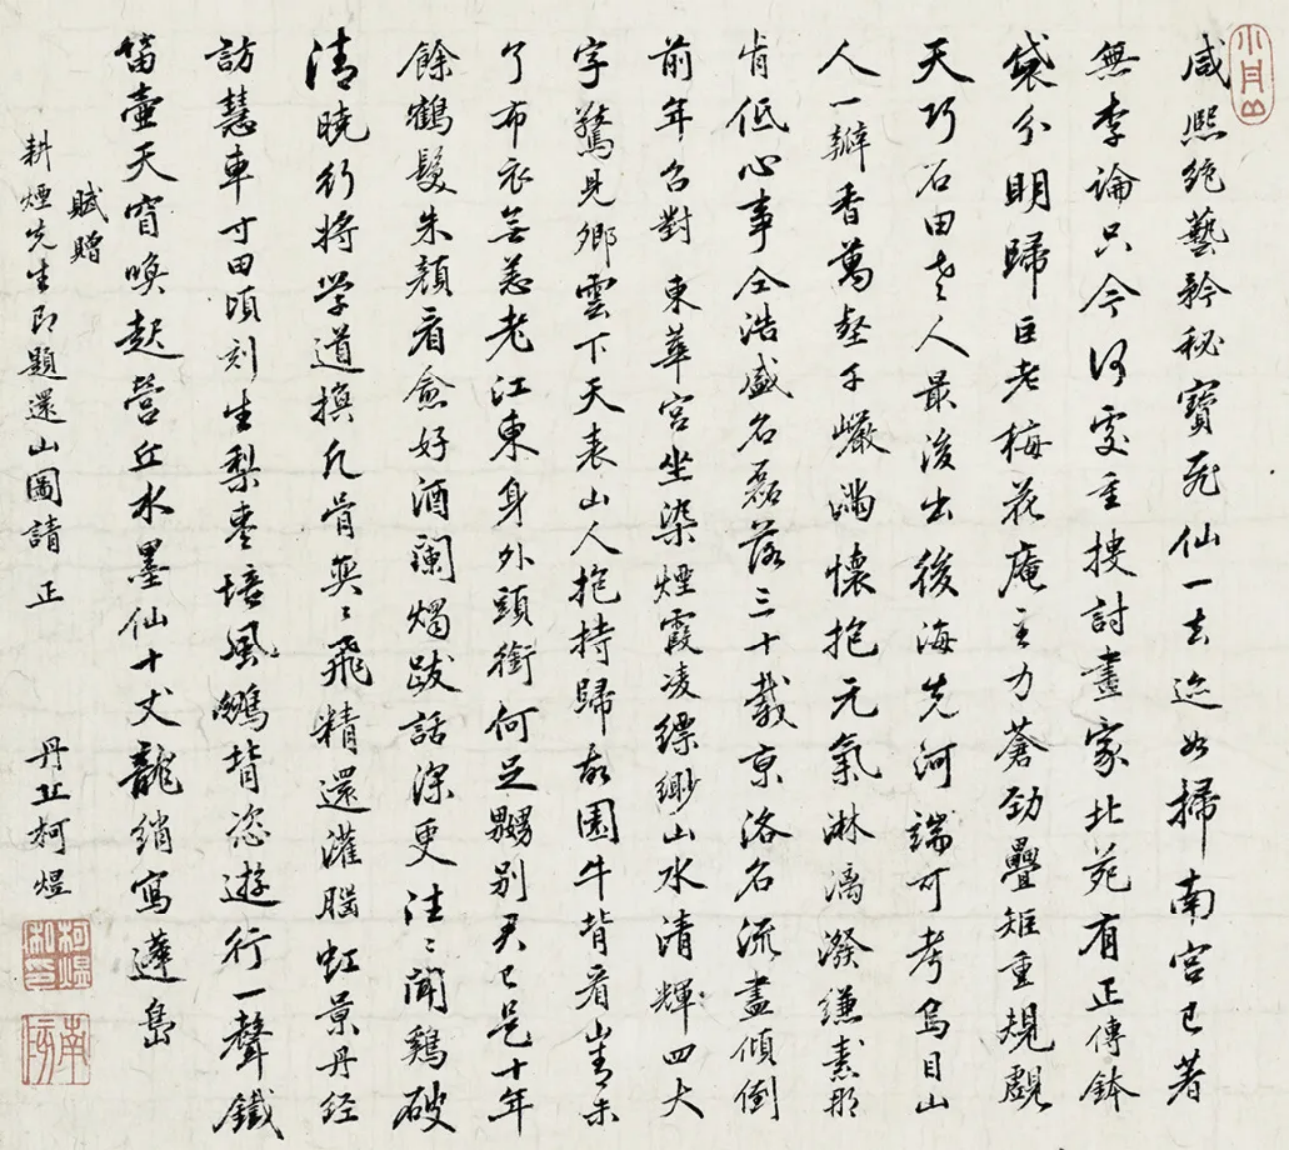 咸熙絶藝矜秘寶飛仙一去迹如掃南宮已著
無李論只今何處重搜討畫家北苑有正傳鉢
袋分明歸巨老梅花庵主力蒼勁疊矩重規覷
天巧石田老人最後出後海先河端可考烏目山
人一瓣香萬壑千巖滿懷抱元氣淋漓潑縑素那
肯低心事仝浩盛名磊落三十載京洛名流盡傾倒
前年召對東華宮坐染煙霞凌縹緲山水清輝四大
字驚見卿雲下天表山人抱持歸故園牛背看山青未
了布衣無恙老江東身外頭銜何足嬲別君已是十年
餘鶴髮朱顏看愈好酒闌燭跋話深更往〻聞鷄破
清曉行將学道換凡骨奕〻飛精還灌腦虹景丹経
訪慧車寸田頃刻生梨棗培風鵬背恣遊行一聲鐵
笛壺天窅喚起營丘水墨仙十丈龍綃寫蓬島
賦贈
耕煙先生即題還山圖請 正
丹丘柯煜